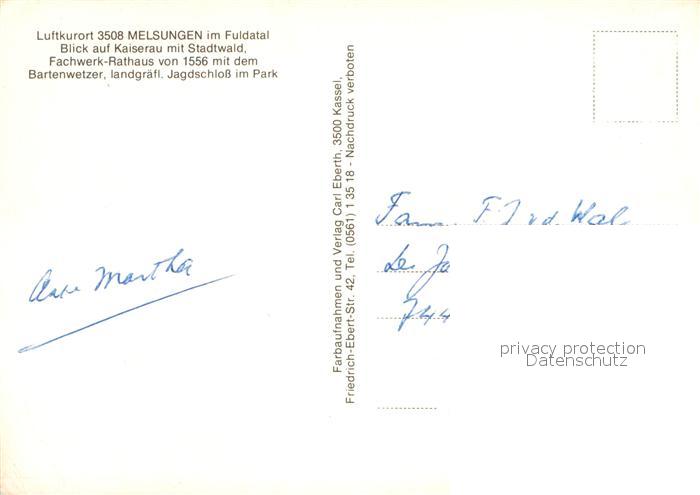 Luftkurort 3508 MELSUNGEN im Fuldatal
Blick auf Kaiserau mit Stadtwald,
Fachwerk-Rathaus von 1556 mit dem
Bartenwetzer, landgräfl. Jagdschloß im Park
Martha
Farbaufnahmen und Verlag Carl Eberth, 3500 Kassel,
Friedrich-Ebert-Str. 42, Tel. (0561) 1 35 18 - Nachdruck verboten
Fam. F. J v.d. Wal
744
privacy protection
Datenschutz